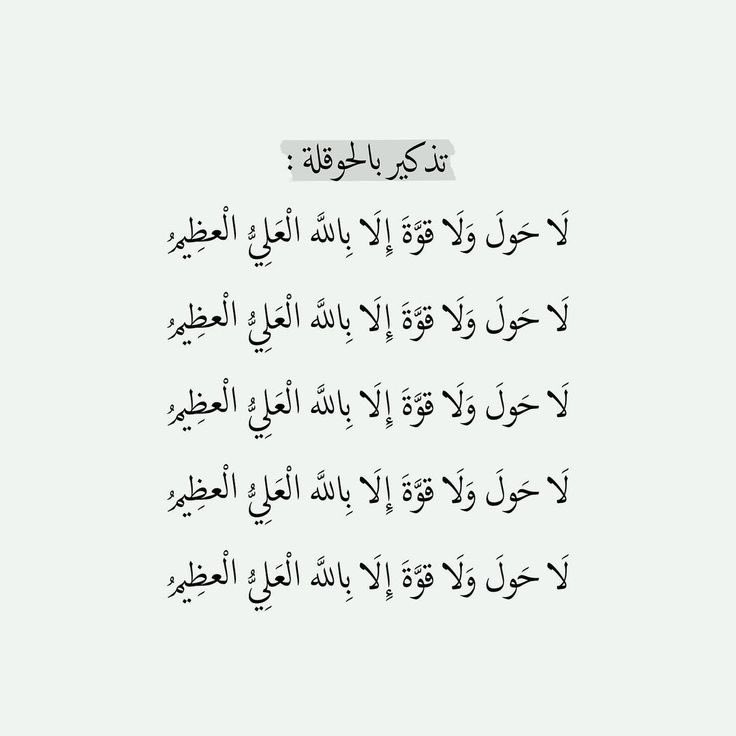 تذكير بالحوقلة :
لَا حَولَ وَلَا قوَّةَ إِلَا بِاللَّه الْعَلِيُّ الْعظِيمُ
لَا حَولَ وَلَا قوَّةَ إِلَا بِاللَّه الْعَلِيُّ الْعظِيمُ
لَا حَولَ وَلَا قوَّةَ إِلَا بِاللَّه الْعَلِيُّ الْعظِيمُ
لَا حَولَ وَلَا قوَّةَ إِلَا بِاللَّه الْعَلِيُّ الْعظِيمُ
لَا حَولَ وَلَا قوَّةَ إِلَا بِاللَّه الْعَلِيُّ الْعظِيمُ